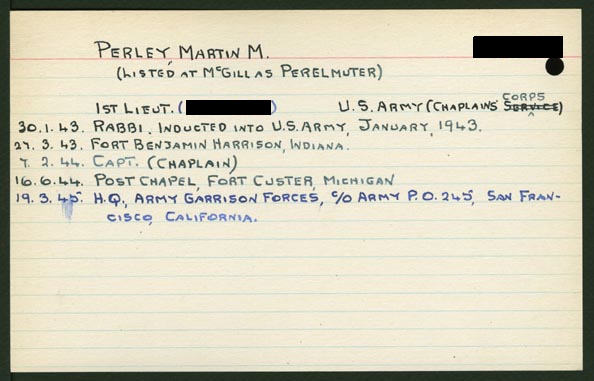 PERLEY, MARTIN M.
(LISTED AT McGILL AS PERELMUTER)
1ST LIEUT. ( ) U.S. ARMY (CHAPLAINS' SERVICE CORPS)
30.1.43. RABBI, INDUCTED INTO U.S. ARMY, JANUARY, 1943.
27.3.43. FORT BENJAMIN HARRISON, INDIANA.
7.2.44. CAPT. (CHAPLAIN)
16.6.44. POST CHAPEL, FORT CUSTER, MICHIGAN
19.3.45. H.Q., ARMY GARRISON FORCES, C/O ARMY P.O. 245, SAN FRAN-
CISCO, CALIFORNIA.